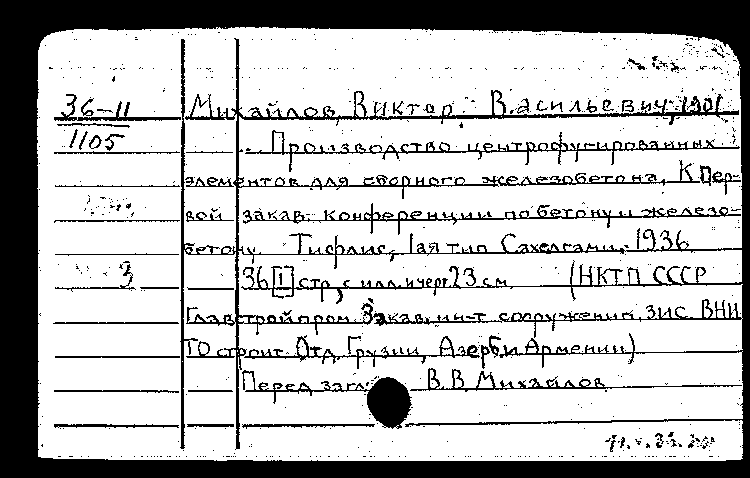 36-11 Михайлов, Виктор Васильевич, 1901
1105 ... Производство центрофугированных
элементов для сборного железобетона, К Пер-
вой закав. конференции по бетону и железо-
бетону. Тифлис, 1ая тип Сахелгами, 1936
3 36 [1] стр, с илл. и черт. 23 см. (НКТП СССР
Главстройпром Закав. ин-т сооружений, ЗИС ВНИ
ТО строит. Отд. Грузии, Азерб. и Армении)
Перед загл. В. В. Михайлов